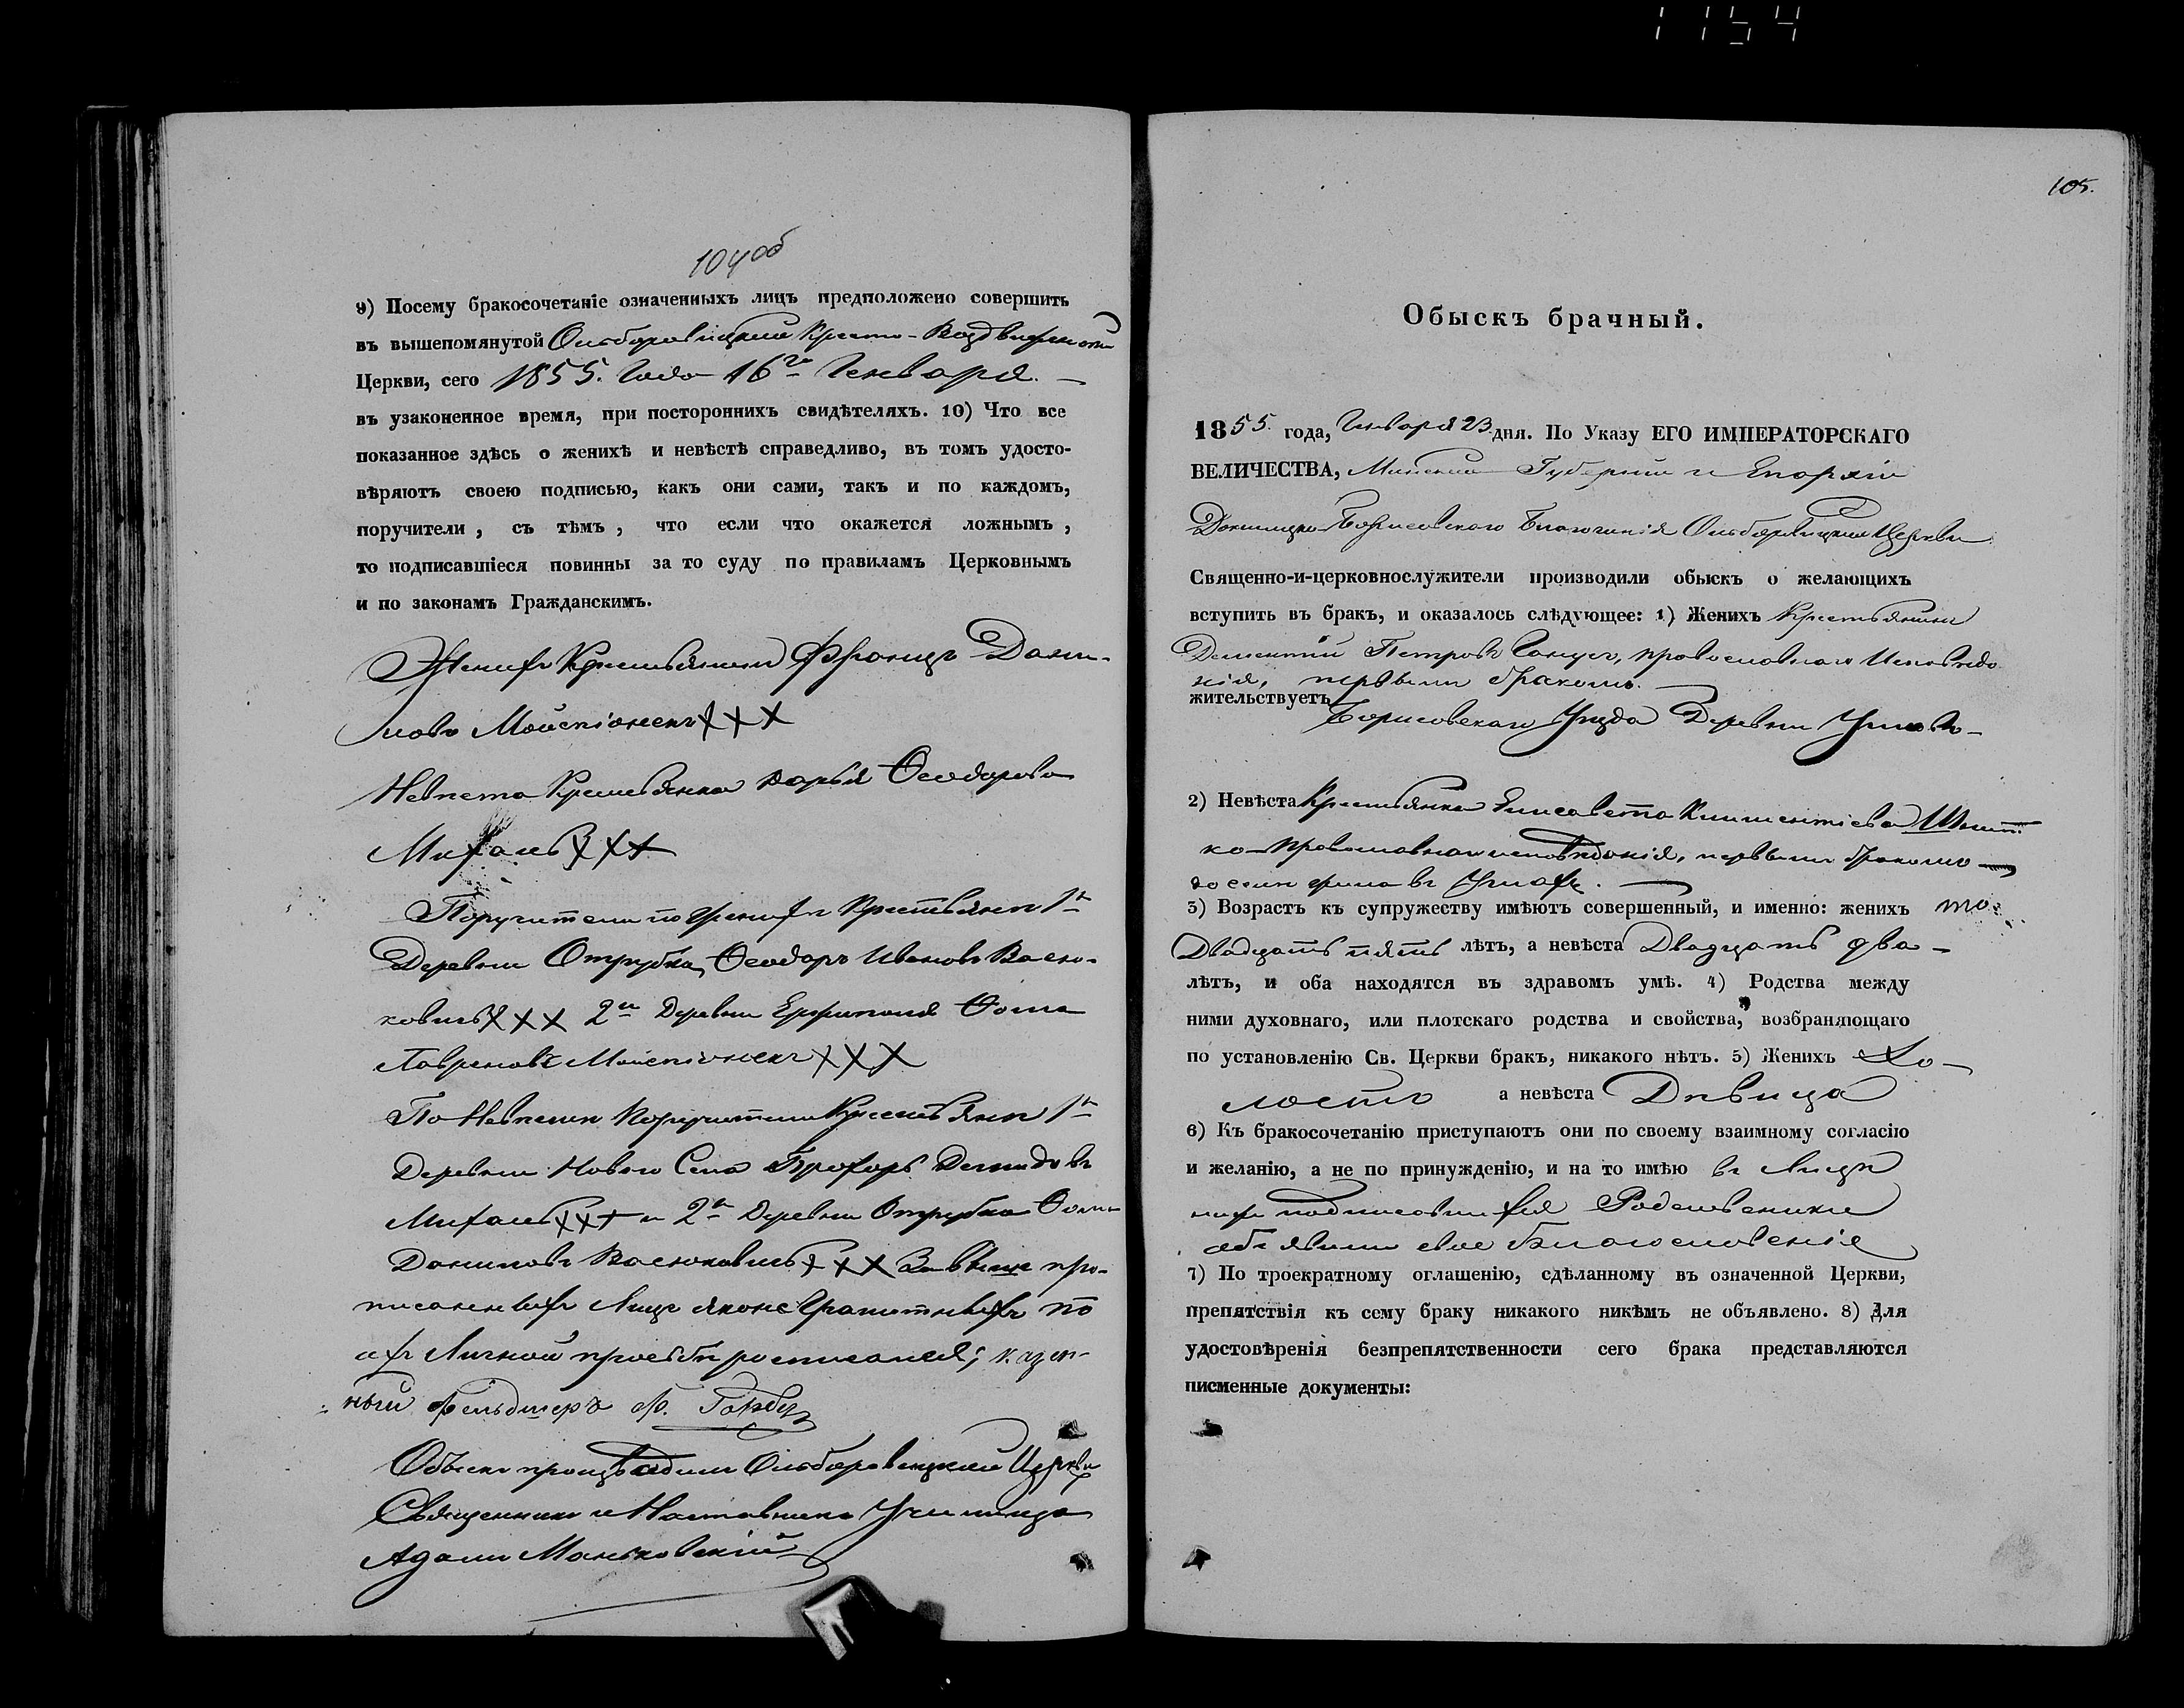 1154
104об
9) Посему бракосочетаніе означенныхъ лицъ предположено совершить
въ вышепомянутой Ольборовицкой Кресто-Воздвиженской
Церкви, сего 1855. Года 16го Генваря.
въ узаконенное время, при постороннихъ свидѣтеляхъ. 10) Что все
показанное здѣсь о женихѣ и невѣстѣ справедливо, въ томъ удосто-
вѣряютъ своею подписью, какъ они сами, такъ и по каждомъ,
поручители, съ тѣмъ, что если что окажется ложнымъ,
то подписавшіеся повинны за то суду по правиламъ Церковнымъ
и по законамъ Гражданскимъ.
Женихъ Крестьянинъ Францъ Дани-
ловъ ХХХ
Невѣста Крестьянка Дарья Ѳеодорова
Михаль ХХХ
Поручители по женихѣ Крестьяне 1й
Деревни Отрубка Ѳеодоръ Ивановъ Васю-
ковичь ХХХ 2й Деревни Ѳома
Лавреновъ ХХХ
По Невѣстѣ Поручители Крестьяне 1й
Деревни Новаго Села Прохоръ Демидовъ
Михаль ХХХ и 2й Деревни Отрубка Ѳома
Даниловъ Васюковичь ХХХ За выше про-
писанныхъ Лицъ яконе Грамотныхъ по
ихъ Личной прозьбѣ росписался; казен-
ный фельдшеръ Ф.
Обыскъ производилъ Ольборовицкой Церкви
Священникъ и Наставникъ Училища
Адамъ Маньковскій
105.
Обыскъ брачный.
1855. года, Генваря 23 дня. По Указу ЕГО ИМПЕРАТОРСКАГО
ВЕЛИЧЕСТВА, Минской Губерніи и Епархіи
Докшицко-Борисовскаго Благочинія Ольборовицкой Церкви
Священно-и-церковнослужители производили обыскъ о желающихъ
вступить въ бракъ, и оказалось слѣдующее: 1) Женихъ Крестьянинъ
Дементій Петровъ православнаго Исповѣда
нія, первымъ бракомъ.
жительствуетъ
Борисовскаго Уѣзда Деревни
2) Невѣста Крестьянка Елисавета Климентіева
ко православнаго исповѣданія, первымъ бракомъ
до сели жила въ
3) Возрастъ къ супружеству имѣютъ совершенный, и именно: женихъ
Двадцать пять лѣтъ, а невѣста Двадцать два
лѣтъ, и оба находятся въ здравомъ умѣ. 4) Родства между
ними духовнаго, или плотскаго родства и свойства, возбраняющаго
по установленію Св. Церкви бракъ, никакого нѣтъ. 5) Женихъ Хо-
лостъ а невѣста Дѣвица
6) Къ бракосочетанію приступаютъ они по своему взаимному согласію
и желанію, а не по принужденію, и на то имѣю въ Лицѣ
ниже подписавшихся Родственники
объявили свое благословеніе
7) По троекратному оглашенію, сдѣланному въ означенной Церкви,
препятствія къ сему браку никакого никѣмъ не объявлено. 8) Для
удостовѣренія безпрепятственности сего брака представляются
писменные документы: